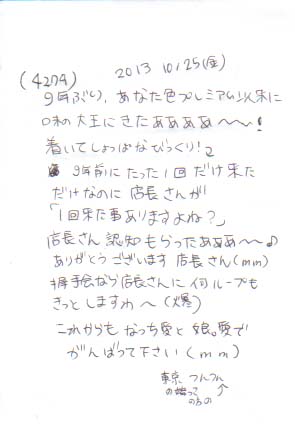 2013 10/25(金)
(4279)
9年ぶり、あなた色プレミアム以来に
味の大王にきたああああ〜〜!
着いてしょっぱなびっくり!2
9年前にたった1回だけ来た
だけなのに店長さんが
「1回来た事ありますよね?」
店長さん認知もらったあああ〜〜♪
ありがとうございます店長さん(mm)
握手会なら店長さんに何ループも
きっとしますわ〜(爆)
これからもなっち愛と娘。愛で
がんばって下さい(mm)
東京 つんつん
の